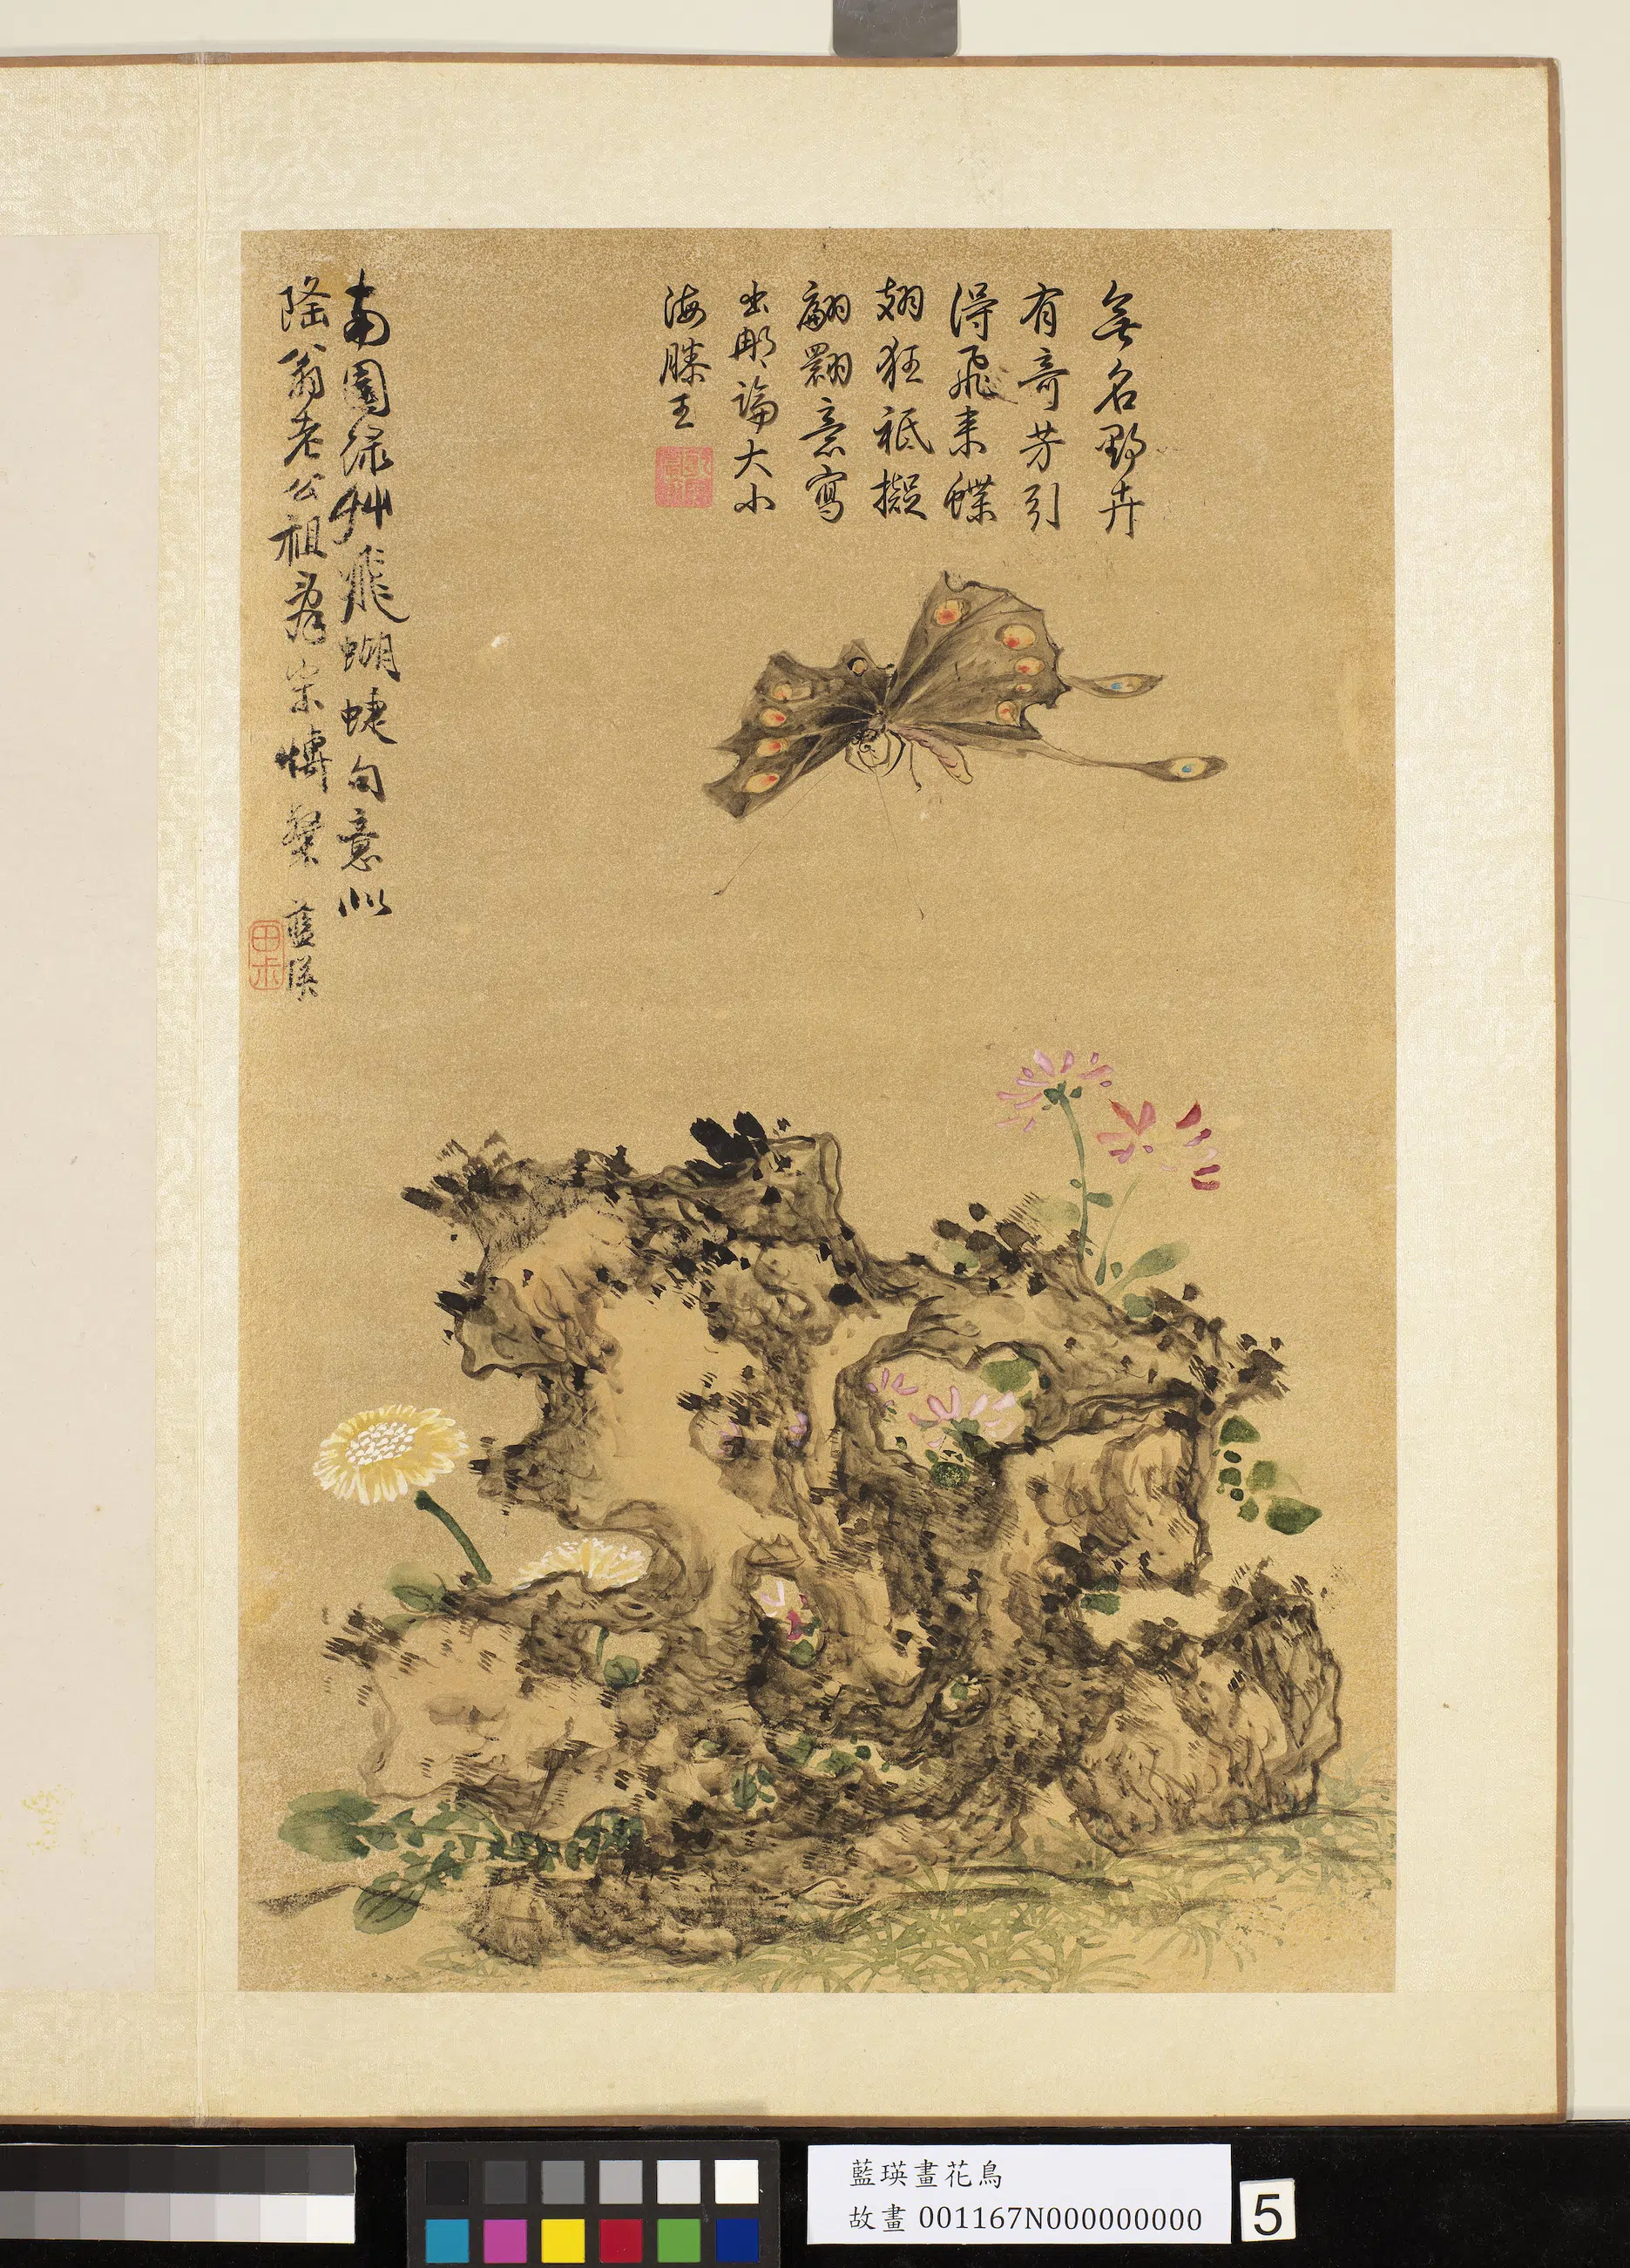 無名野卉
有奇芳引
得飛来蝶
翅狂祗擬
翩翾意寫
出那論大小
海滕王
南園綠艸飛蝴蜨句意似
隆翁老公祖宗博粲 藍瑛
田尗
藍瑛畫花鳥
故畫 001167N000000000
5